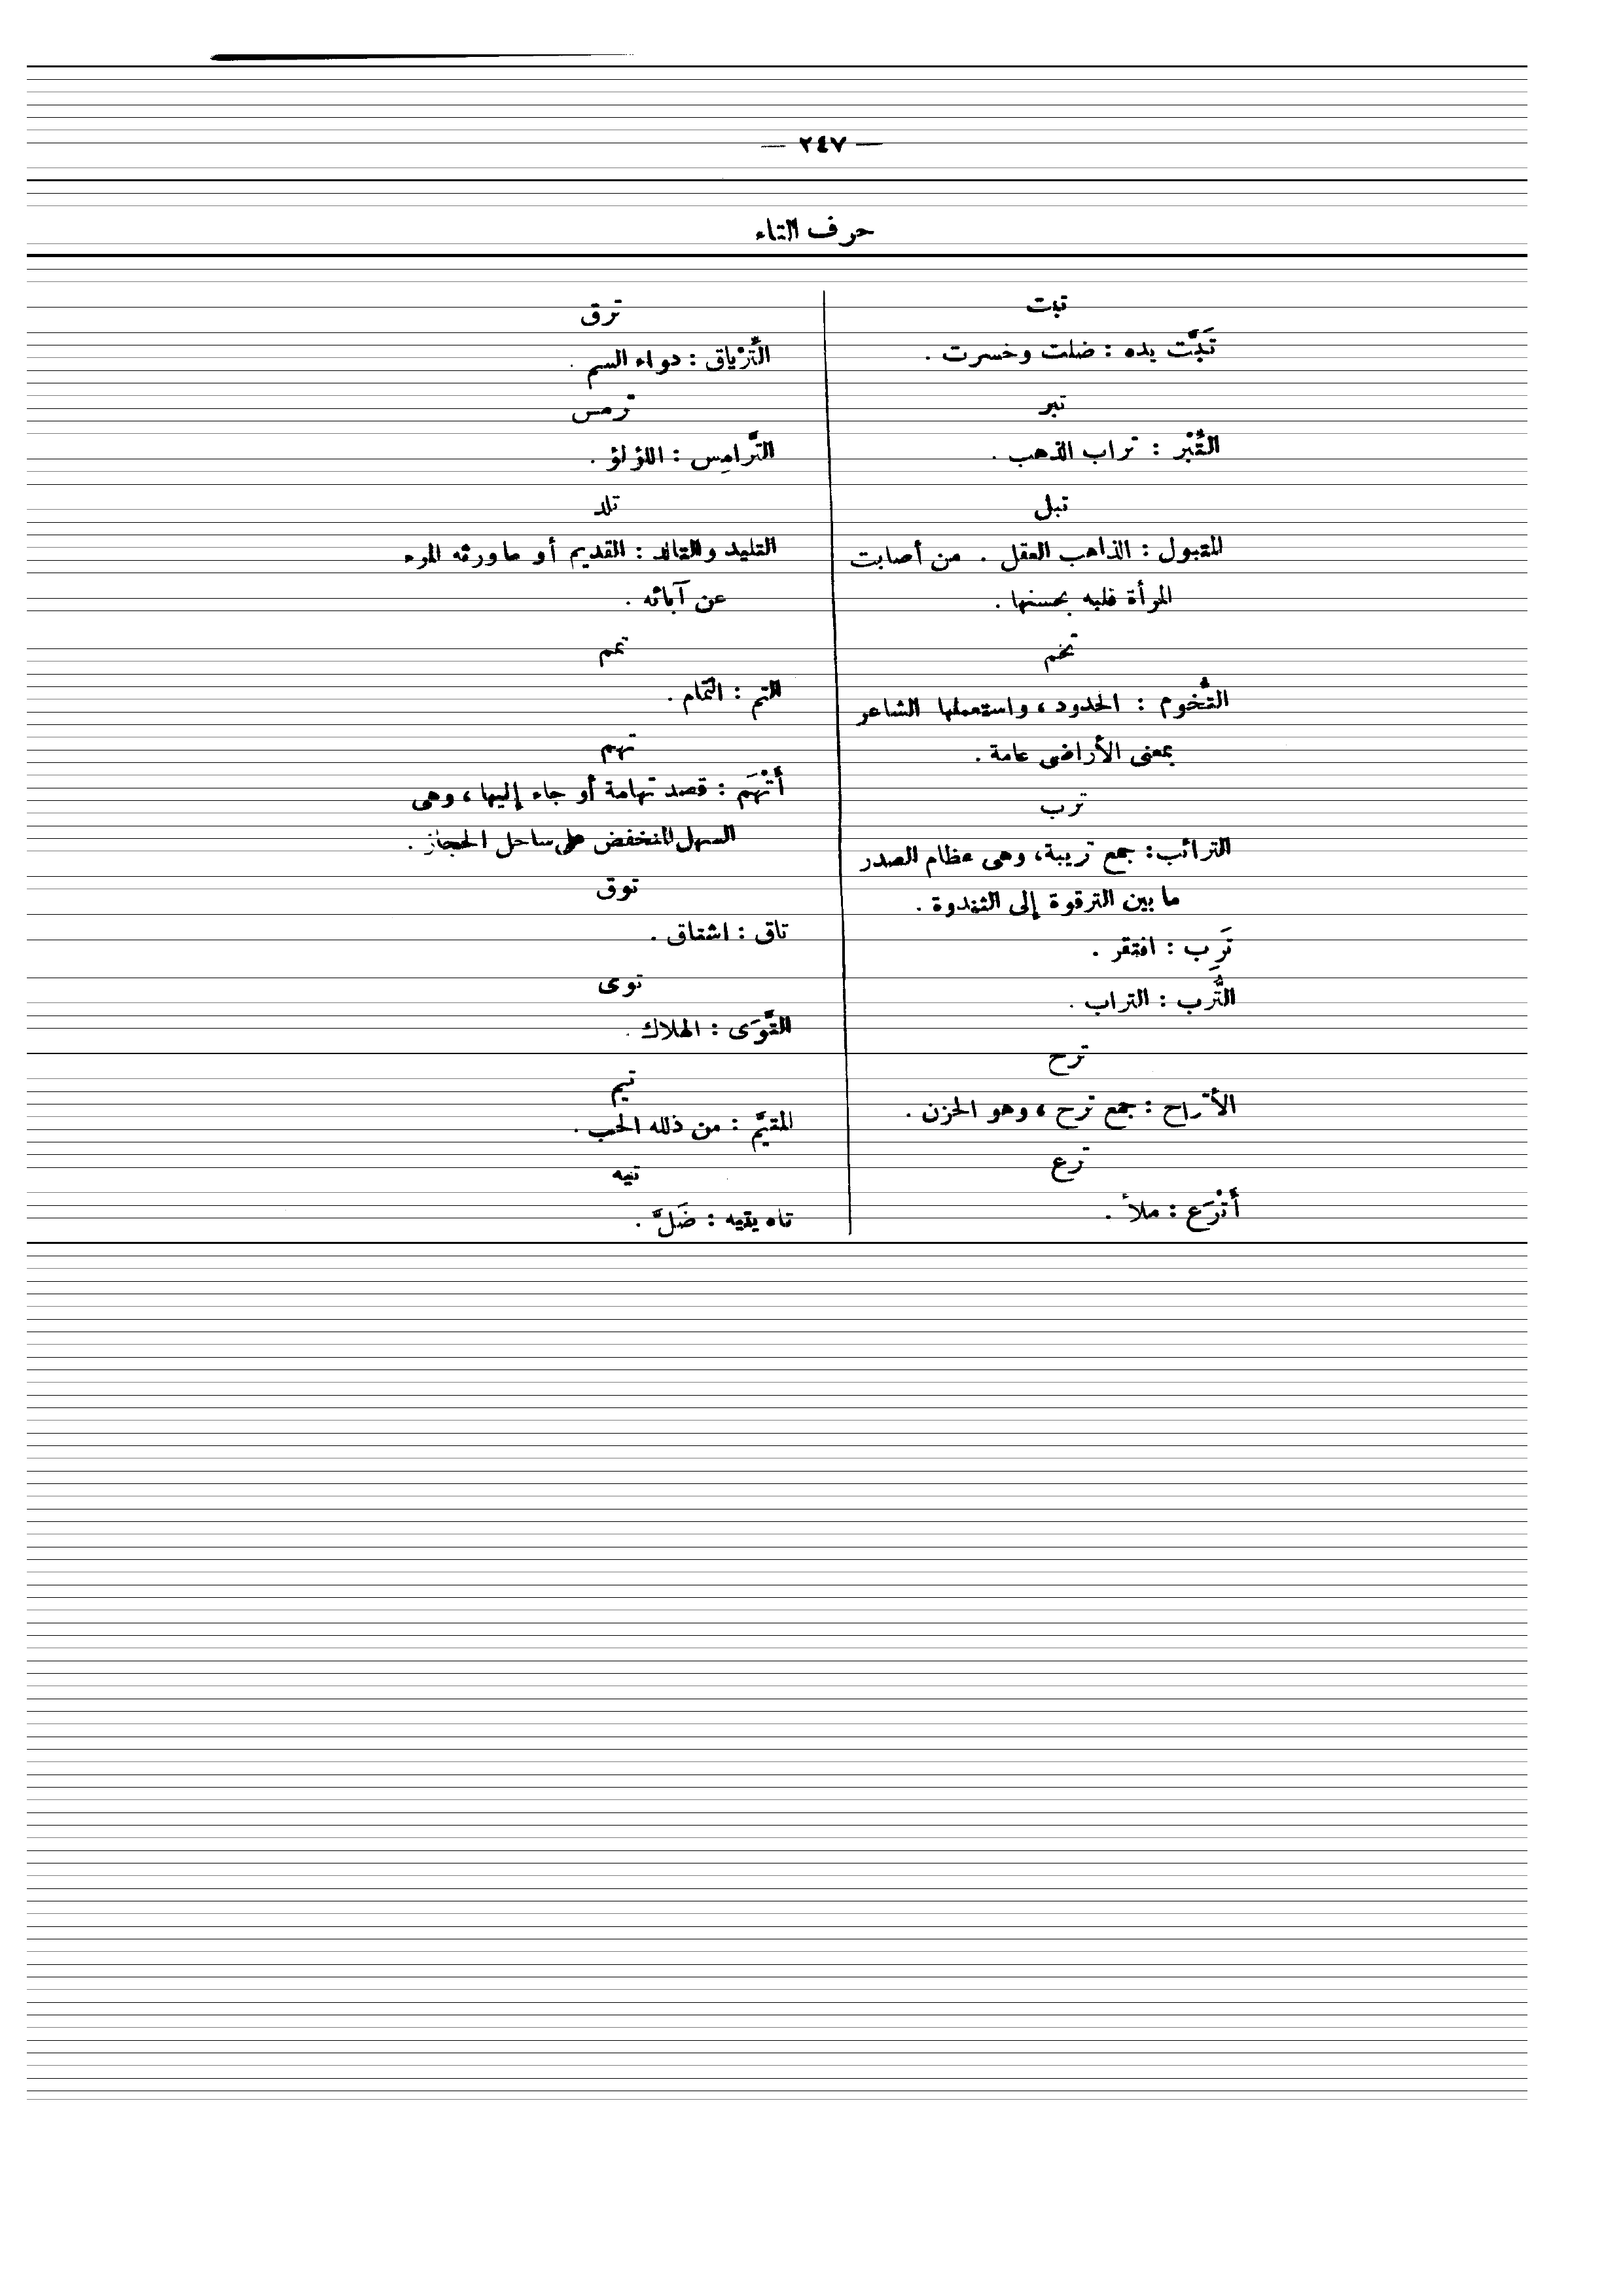 — ٢٤٧ —
حرف التاء
تبت
تَبَّت يده : ضلت وخسرت .
تبر
التِّبْر : تراب الذهب .
تبل
المتبول : الذاهب العقل . من أصابت
المرأة قلبه بحسنها .
تخم
التُّخوم : الحدود ، واستعملها الشاعر
بمعنى الأراضى عامة .
ترب
الترائب : جمع تريبة، وهى عظام الصدر
ما بين الترقوة إلى الثندوة .
تَرِب : افتقر .
التُّرب : التراب .
ترح
الأتراح : جمع ترح ، وهو الحزن .
ترع
أَتْرَع : ملأ .
ترق
التِّرْياق : دواء السم .
ترمس
التَّرامِس : اللؤلؤ .
تلد
التليد والتالد : القديم أو ما ورثه المرء
عن آبائه .
تمم
التم : التمام .
تهم
أَتْهَم : قصد تهامة أو جاء إليها ، وهى
السهل المنخفض على ساحل الحجاز .
توق
تاق : اشتاق .
توى
التَّوَى : الهلاك .
تيم
المتيَّم : من ذلله الحب .
تيه
تاه يتيه : ضَلَّ .